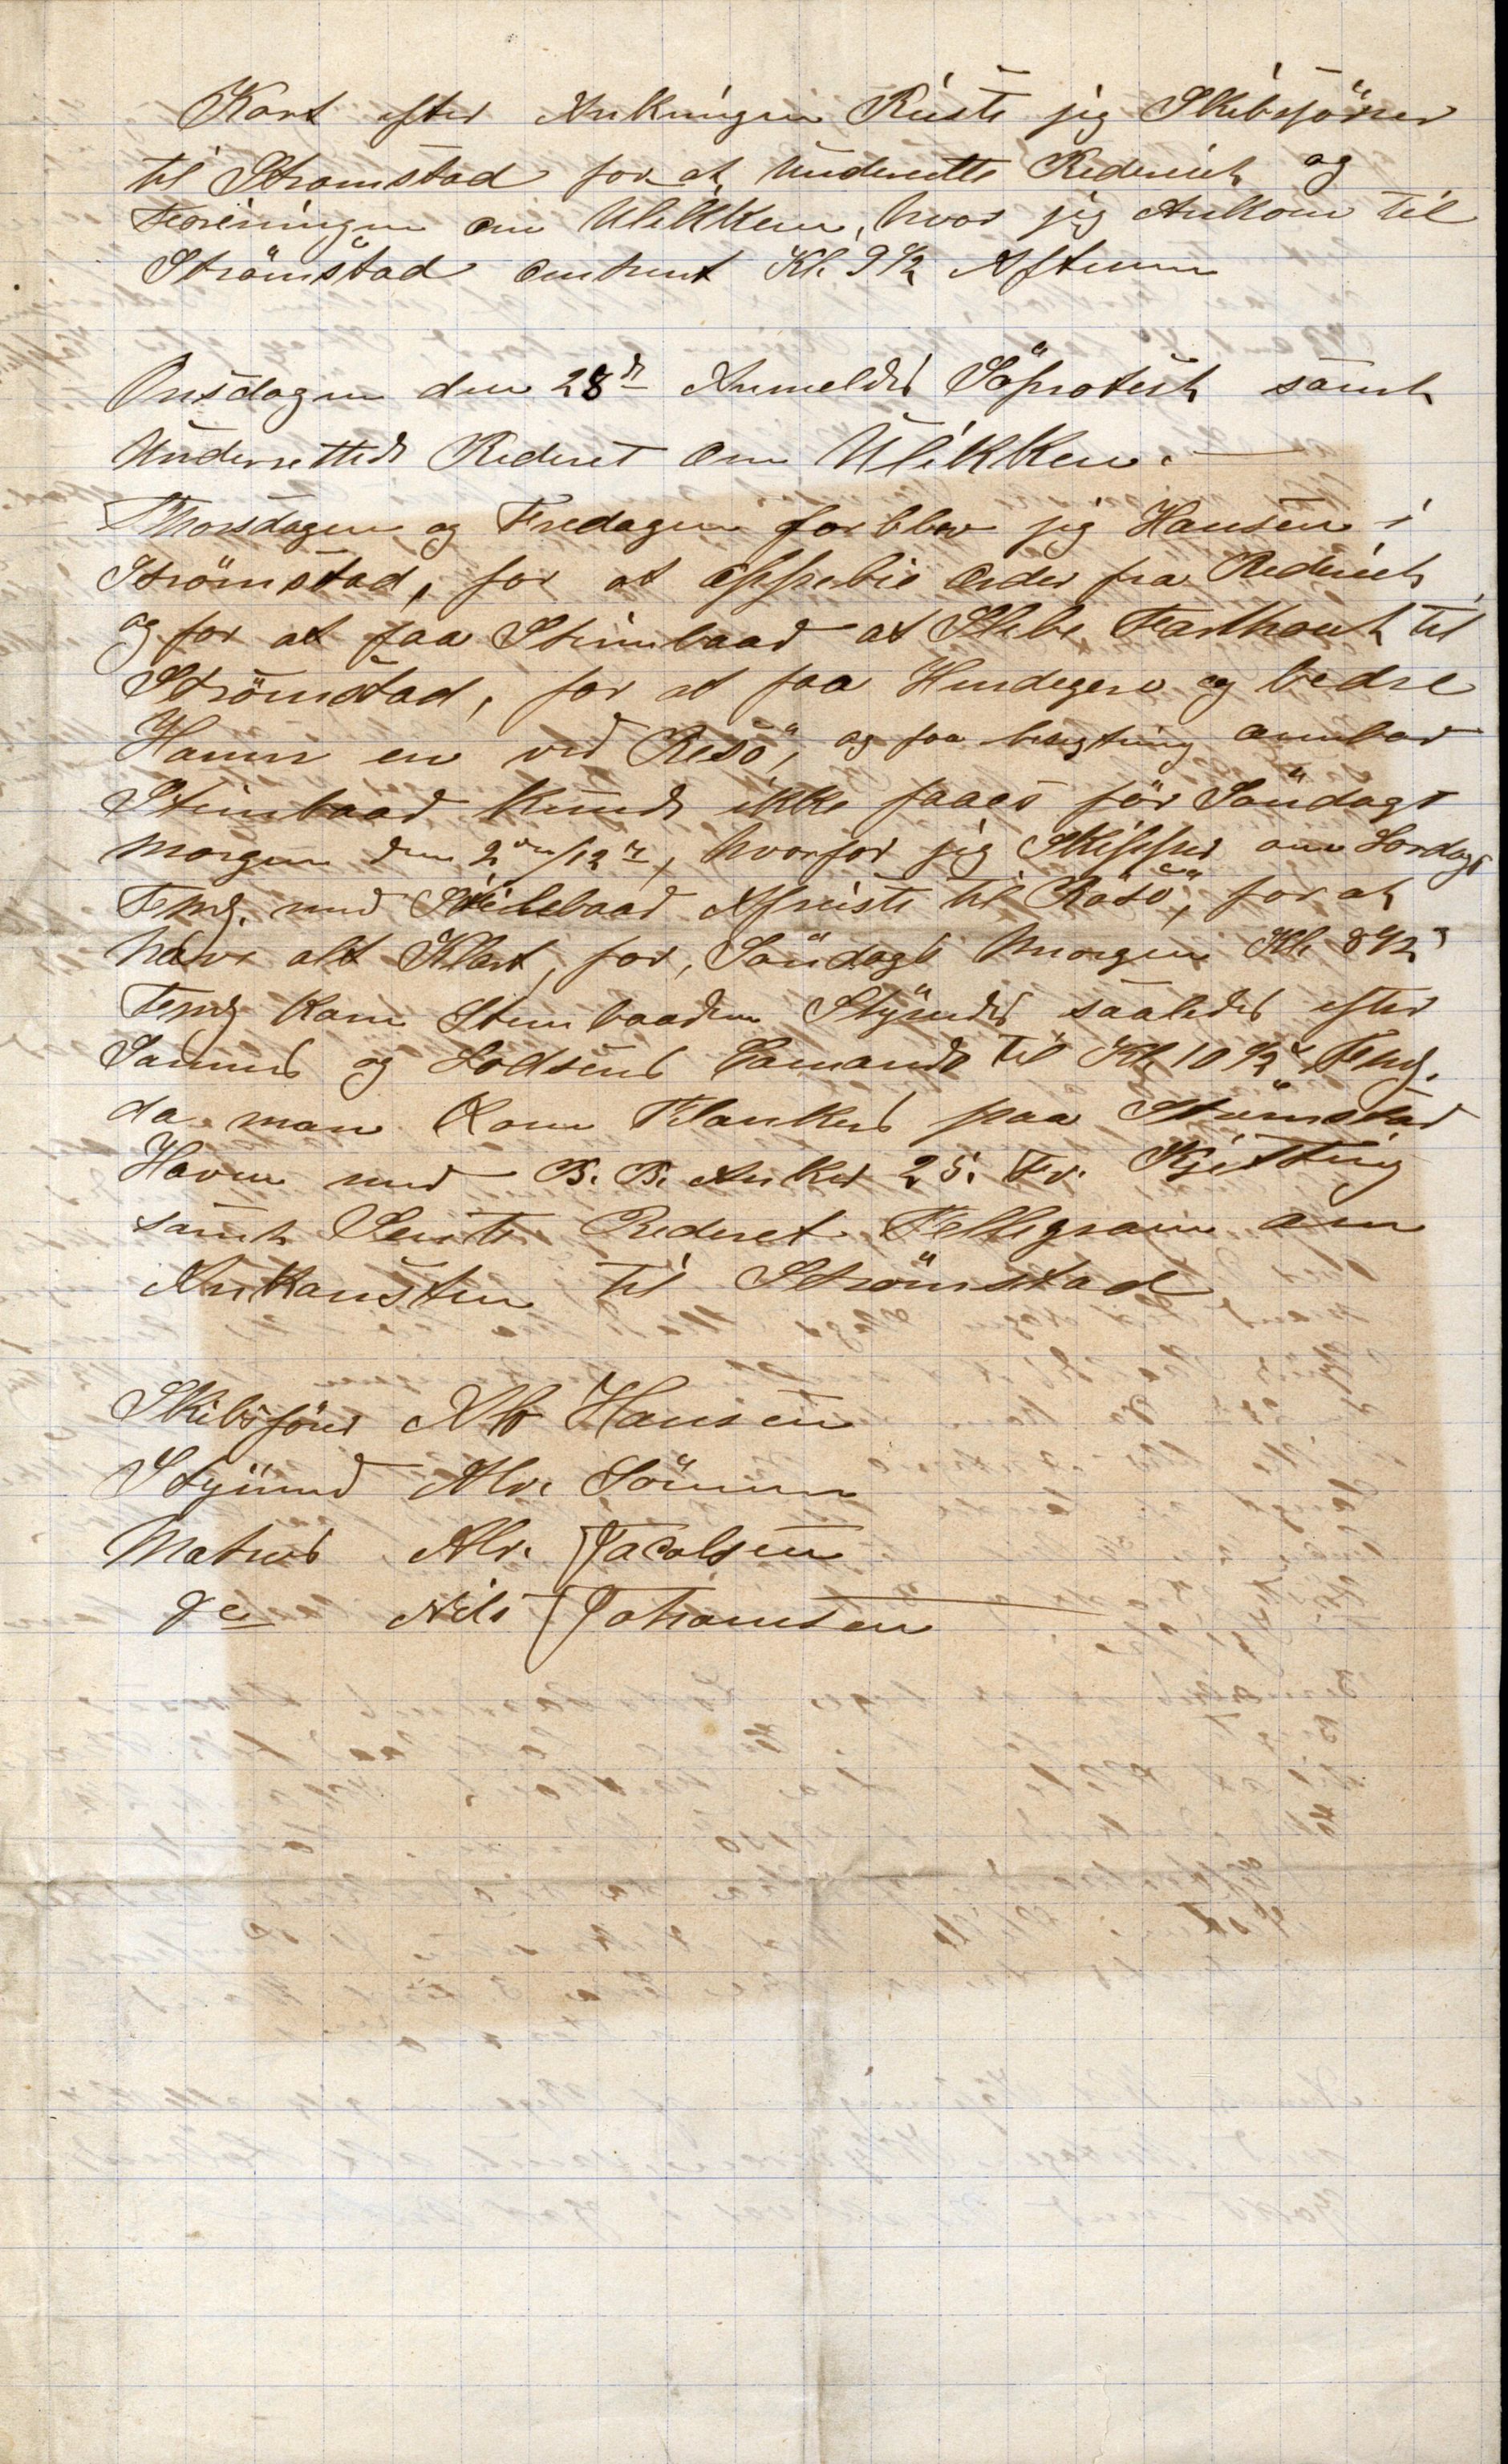 Kort efter Ankningen Reiste jig Skibsförer
til Stromstad for at Underrette Rederiet og
Foreiningen om Ulikken, hvor jig Ankom til
Strömstad omtrent Kl. 9 1/2 Aftenen
Onsdagen den 28de Anmeldes Söprotest samt
Underrettede Rederet om Ulikken.
Thorsdagen og Fredagen forblev jig Hansen i
Strömstad, for at oppebie Order fra Rederiet,
og for at faa Steimbaad at Slebe Farthøuet til
Strömstad, for at faa Hendegere og bedre
Hamn en ved Resö, og faa bragting ombord
Steimbaad Kunde ikke faaes för Söndags
Morgen den 2den/12te, hvorfor jig Skipper om Lordags
Fmg. med Seilebaad Afreiste til Rösö, for at
have alt Klart, for, Söndags Morgen Kl. 8 1/2
Fmg Kom Steimbaaden Styredes saaledes efter
Samme og Lodsens Comando til Kl 10 1/2 Fmg.
da man Kom Tilankers paa Strömstad
Havn med B. B. Anker 25. Fv. Kjetting
samt Sente Rederet Tellegram om
Ankomsten til Strömstad
Skibsförer Ab Hansen
Styrmand Alv. Sörensen
Matros Alv. Jacobsen
do Nils Johansen